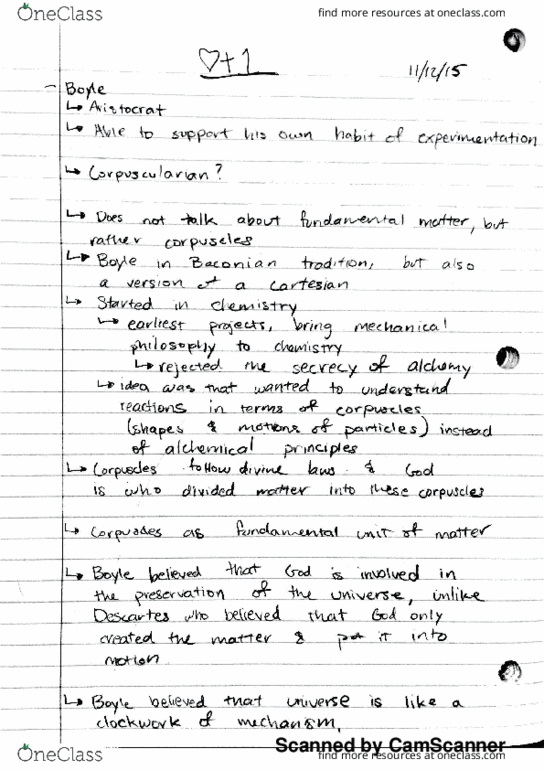 OneClass find more resources at oneclass.com
♡+1
11/12/15
- Boyle
↳ Aristocrat
↳ Able to support his own habit of experimentation
↳ Corpuscularian?
↳ Does not talk about fundamental matter, but
rather corpuscles
↳ Boyle in Baconian tradition, but also
a version of a Cartesian
↳ Started in chemistry
↳ earliest projects, bring mechanical
philosophy to chemistry
↳ rejected the secrecy of alchemy
↳ idea was that wanted to understand
reactions in terms of corpuscles
(shapes & motions of particles) instead
of alchemical principles
↳ Corpuscles follow divine laws & God
is who divided matter into these corpuscles
↳ Corpuscles as fundamental unit of matter
↳ Boyle believed that God is involved in
the preservation of the universe, unlike
Descartes who believed that God only
created the matter & put it into
motion.
↳ Boyle believed that universe is like a
clockwork of mechanism,
Scanned by CamScanner
OneClass find more resources at oneclass.com